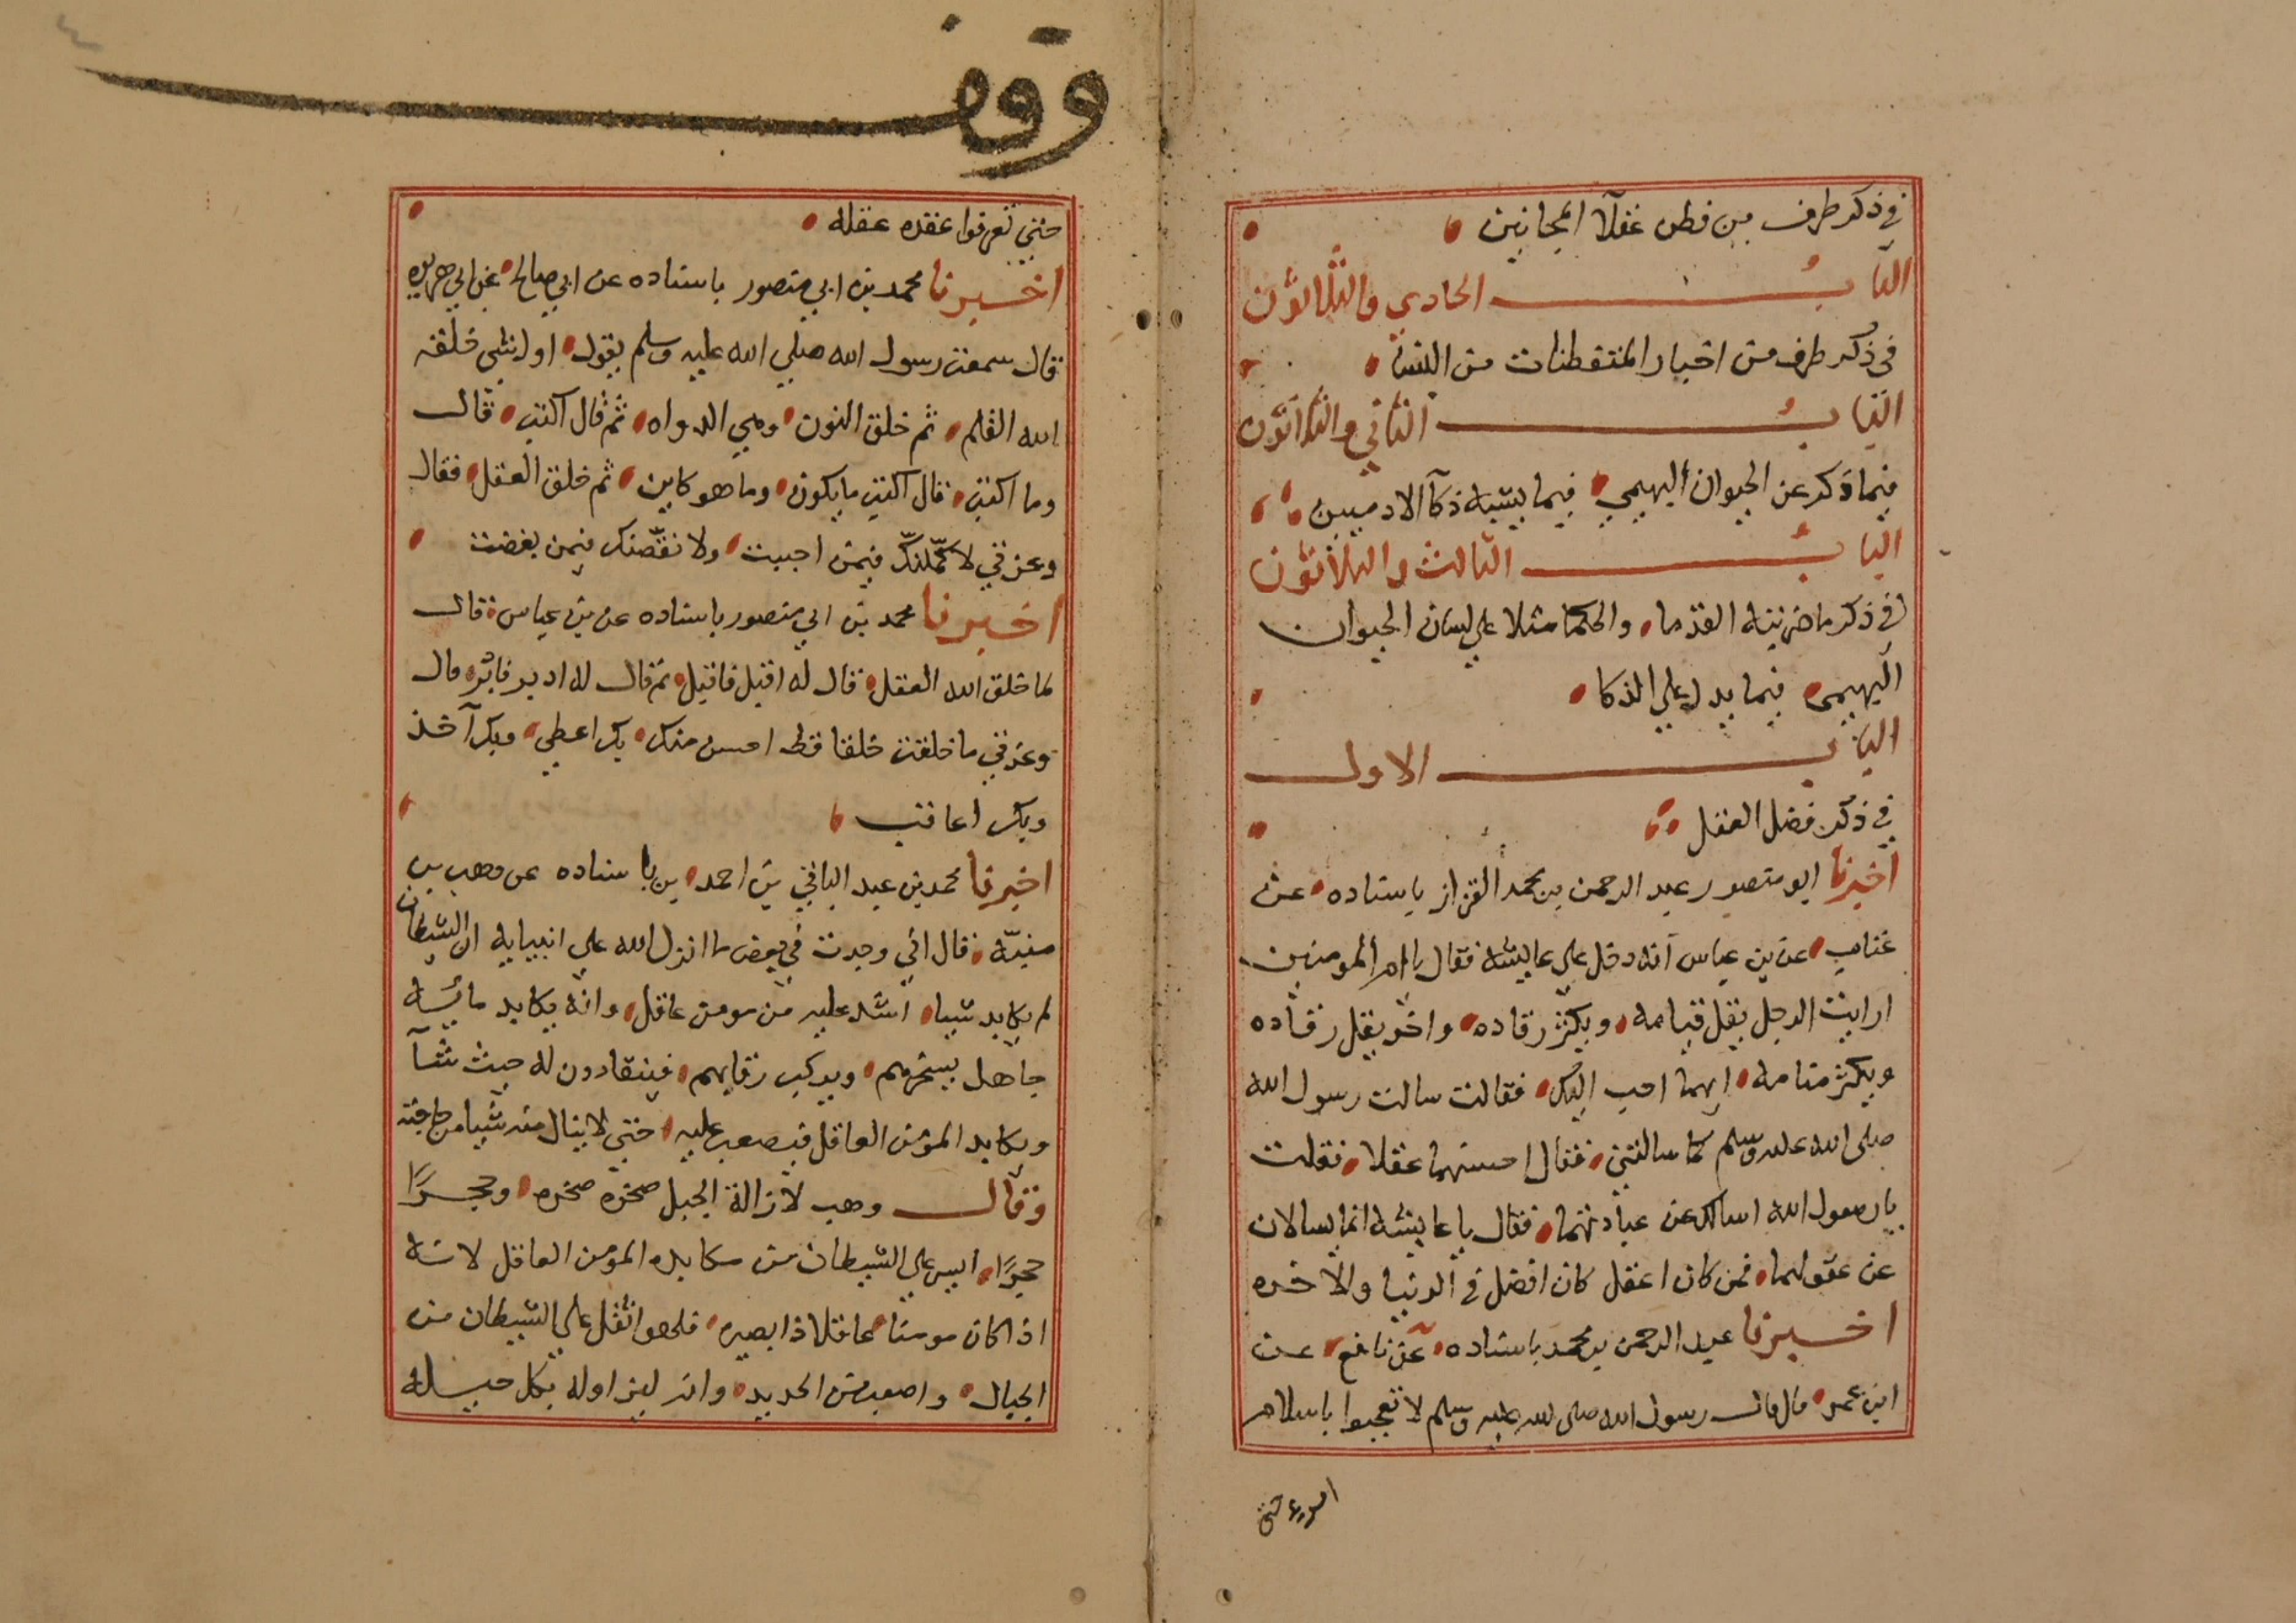 في ذكر طرف من فطن عقلآ المجانين
البابُ الحادي والثلاثون
في ذكر طرف من اخبار المتفطنات من النسا
البابُ الثاني والثلاثون
فيما ذكر عن الحيوان البهيمي فيما يشبه ذكآ الادميين
البابُ الثالث والثلاثون
في ذكر ما ضربته القدما والحكما مثلا على لسان الحيوان
البهيمى فيما يدل علي الذكا
الباب الاول
في ذكر فضل العقل
اخبرنا ابو منصور عبد الرحمن بن محمد القزاز باسناده عن
عن بن عباس انه دخل علي عايشه فقال يا ام المومنين
ارايت الرجل يقل قيامه ويكثر رقاده واخر يقل رقاده
ويكثر منامه ايهما احب اليك فقالت سالت رسول الله
صلى الله عليه وسلم كما سالتني فقال احسنهما عقلا فقلت
يا رسول الله اسالك عن عبادتهما فقال يا عايشه انما يسالان
عن عقولهما فمن كان اعقل كان افضل في الدنيا والاخره
اخبرنا عبد الرحمن بن محمد باسناده عن نافع عن
ابن عمر قال قال رسول الله صلى الله عليه وسلم لا تعجبوا باسلام
امرء حتى
وقف
حتي تعرفوا عقده عقله
اخبرنا محمد بن ابي منصور باسناده عن ابي صالح عن ابي هريره
قال سمعت رسول الله صلي الله عليه وسلم يقول اول شي خلقه
الله القلم ثم خلق النون وهي الدواه ثم قال اكتب قال
وما اكتب قال اكتب ما يكون وما هو كاين ثم خلق العقل فقال
وعزتي لاكمّلنكّ فيمن احببت ولانقّصنك فيمن بغضت
اخبرنا محمد بن ابي منصور باسناده عن بن عباس قال
لما خلق الله العقل قال له اقبل فاقبل ثم قال له ادبر فادبر قال
وعزتي ما خلقت خلقا قط احسن منك بك اعطي وبك آخذ
وبك اعاقب
اخبرنا محمد بن عبد الباقي بن احمد بن باسناده عن وهب بن
منبّه قال اني وجدت في بعض ما انزل الله علي انبيايه ان الشيطان
لم يكابد شيا اشد عليه من مومن عاقل وانه يكابد مايه
جاهل يسخرهم ويركب رقابهم فينقادون له حيث شآ
ويكابد المؤمن العاقل فيصعب عليه حتي لا ينال منه شيا من حاجته
وقال وهب لازالة الجبل صخره صخره وحجرًا
حجرًا ايسر علي الشيطان من مكابده المومن العاقل لانه
اذا كان مومنا عاقلا ذا بصيره فلهو اثقل علي الشيطان من
الجبال واصعب من الحديد وانه ليزاوله بكل حيله